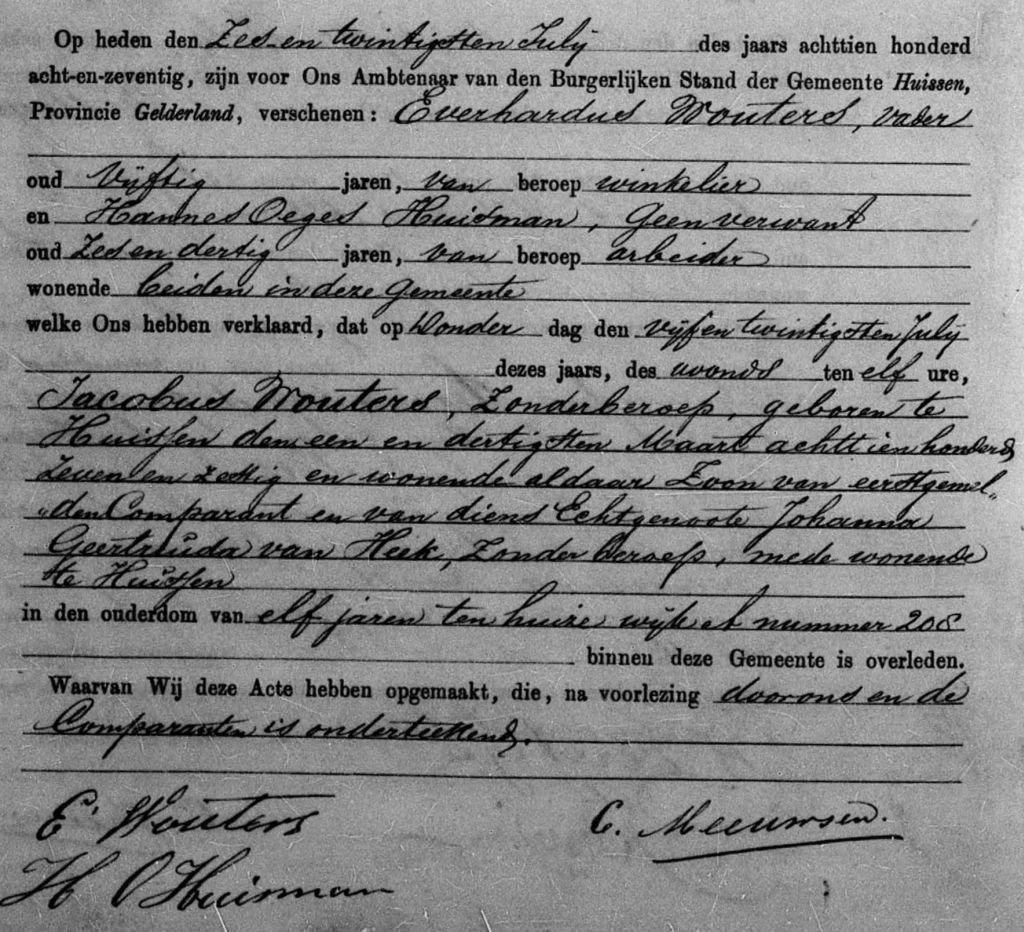 Op heden den Zes en twintigsten July des jaars achttien honderd
acht-en-zeventig, zijn voor Ons Ambtenaar van den Burgerlijken Stand der Gemeente Huissen,
Provincie Gelderland, verschenen: Everhardus Wouters, vader
oud Vijftig jaren, van beroep winkelier
en Hannes Oeges Huisman, Geen verwant
oud Zes en dertig jaren, van beroep arbeider
wonende beiden in deze Gemeente
welke Ons hebben verklaard, dat op Donder dag den vijf en twintigsten July
dezes jaars, des avonds ten elf ure,
Jacobus Wouters, Zonder beroep, geboren te
Huissen den een en dertigsten Maart achttien honderd
zeven en zestig en wonende aldaar Zoon van eerstgemel„
„den Comparant en van diens Echtgenoote Johanna
Geertruida van Heek, Zonder beroep, mede wonende
te Huissen
in den ouderdom van elf jaren ten huize wijk A nummer 208
binnen deze Gemeente is overleden.
Waarvan Wij deze Acte hebben opgemaakt, die, na voorlezing door ons en de
Comparanten is onderteekend.
E Wouters
C. Meeuwsen.
H O Huisman